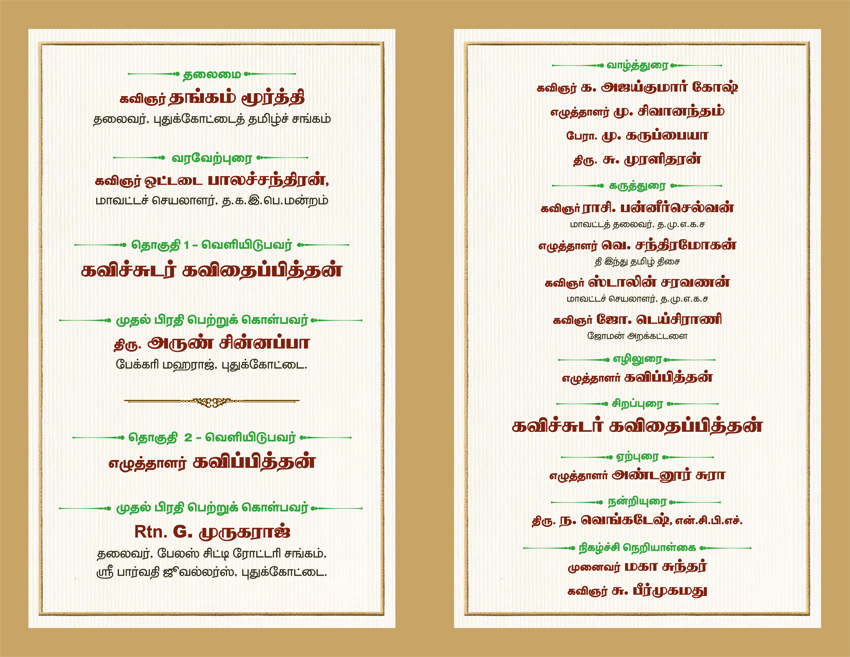 தலைமை
கவிஞர் தங்கம் மூர்த்தி
தலைவர், புதுக்கோட்டைத் தமிழ்ச் சங்கம்
வரவேற்புரை
கவிஞர் ஒட்டடை பாலச்சந்திரன்,
மாவட்டச் செயலாளர், த.க.இ.பெ.மன்றம்
தொகுதி 1 - வெளியிடுபவர்
கவிச்சுடர் கவிதைப்பித்தன்
முதல் பிரதி பெற்றுக் கொள்பவர்
திரு. அருண் சின்னப்பா
பேக்கரி மஹராஜ், புதுக்கோட்டை.
தொகுதி 2 - வெளியிடுபவர்
எழுத்தாளர் கவிப்பித்தன்
முதல் பிரதி பெற்றுக் கொள்பவர்
Rtn. G. முருகராஜ்
தலைவர், பேலஸ் சிட்டி ரோட்டரி சங்கம்,
ஸ்ரீ பார்வதி ஜூவல்லர்ஸ், புதுக்கோட்டை.
வாழ்த்துரை
கவிஞர் க. அஜய்குமார் கோஷ்
எழுத்தாளர் மு. சிவானந்தம்
பேரா. மு. கருப்பையா
திரு. சு. முரளிதரன்
கருத்துரை
கவிஞர் ராசி. பன்னீர்செல்வன்
மாவட்டத் தலைவர், த.மு.எ.க.ச
எழுத்தாளர் வெ. சந்திரமோகன்
தி இந்து தமிழ் திசை
கவிஞர் ஸ்டாலின் சரவணன்
மாவட்டச் செயலாளர், த.மு.எ.க.ச
கவிஞர் ஜோ. டெய்சிராணி
ஜோமன் அறக்கட்டளை
எழிலுரை
எழுத்தாளர் கவிப்பித்தன்
சிறப்புரை
கவிச்சுடர் கவிதைப்பித்தன்
ஏற்புரை
எழுத்தாளர் அண்டனூர் சுரா
நன்றியுரை
திரு. ந. வெங்கடேஷ், என்.சி.பி.எச்.
நிகழ்ச்சி நெறியாள்கை
முனைவர் மகா சுந்தர்
கவிஞர் சு. பீர்முகமது